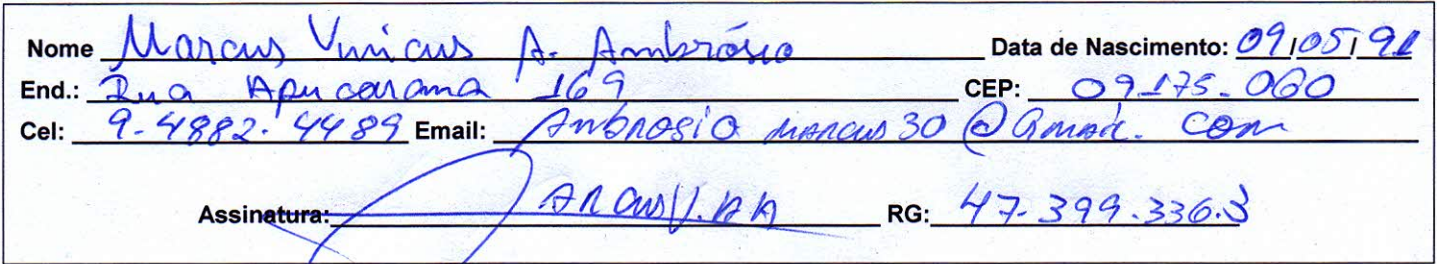 Nome Marcus Vinicius A. Ambrósio Data de Nascimento: 09/05/91
End.: Rua Apucarana 169 CEP: 09175-060
Cel: 9-4882-4489 Email: Ambrosio marcus30@Gmail.com
Assinatura: RG: 47.399.336.3